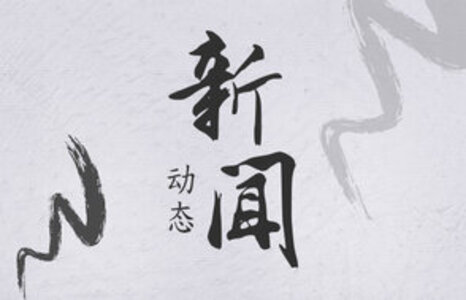 新闻
动态